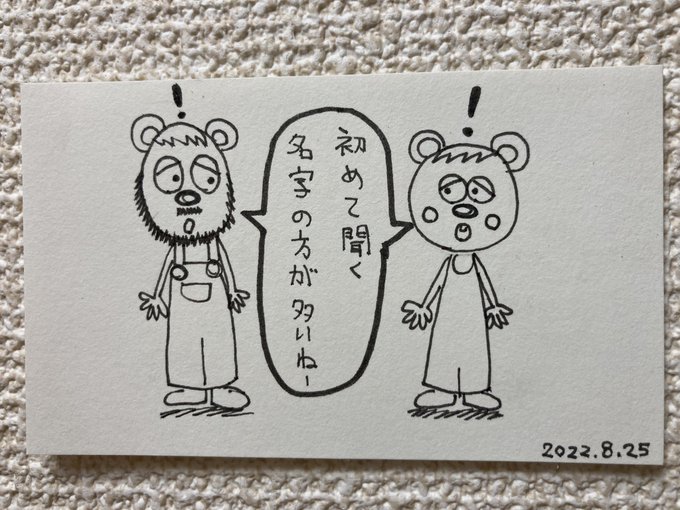 !
!
初めて聞く
名字の方が多いねー
2022.8.25